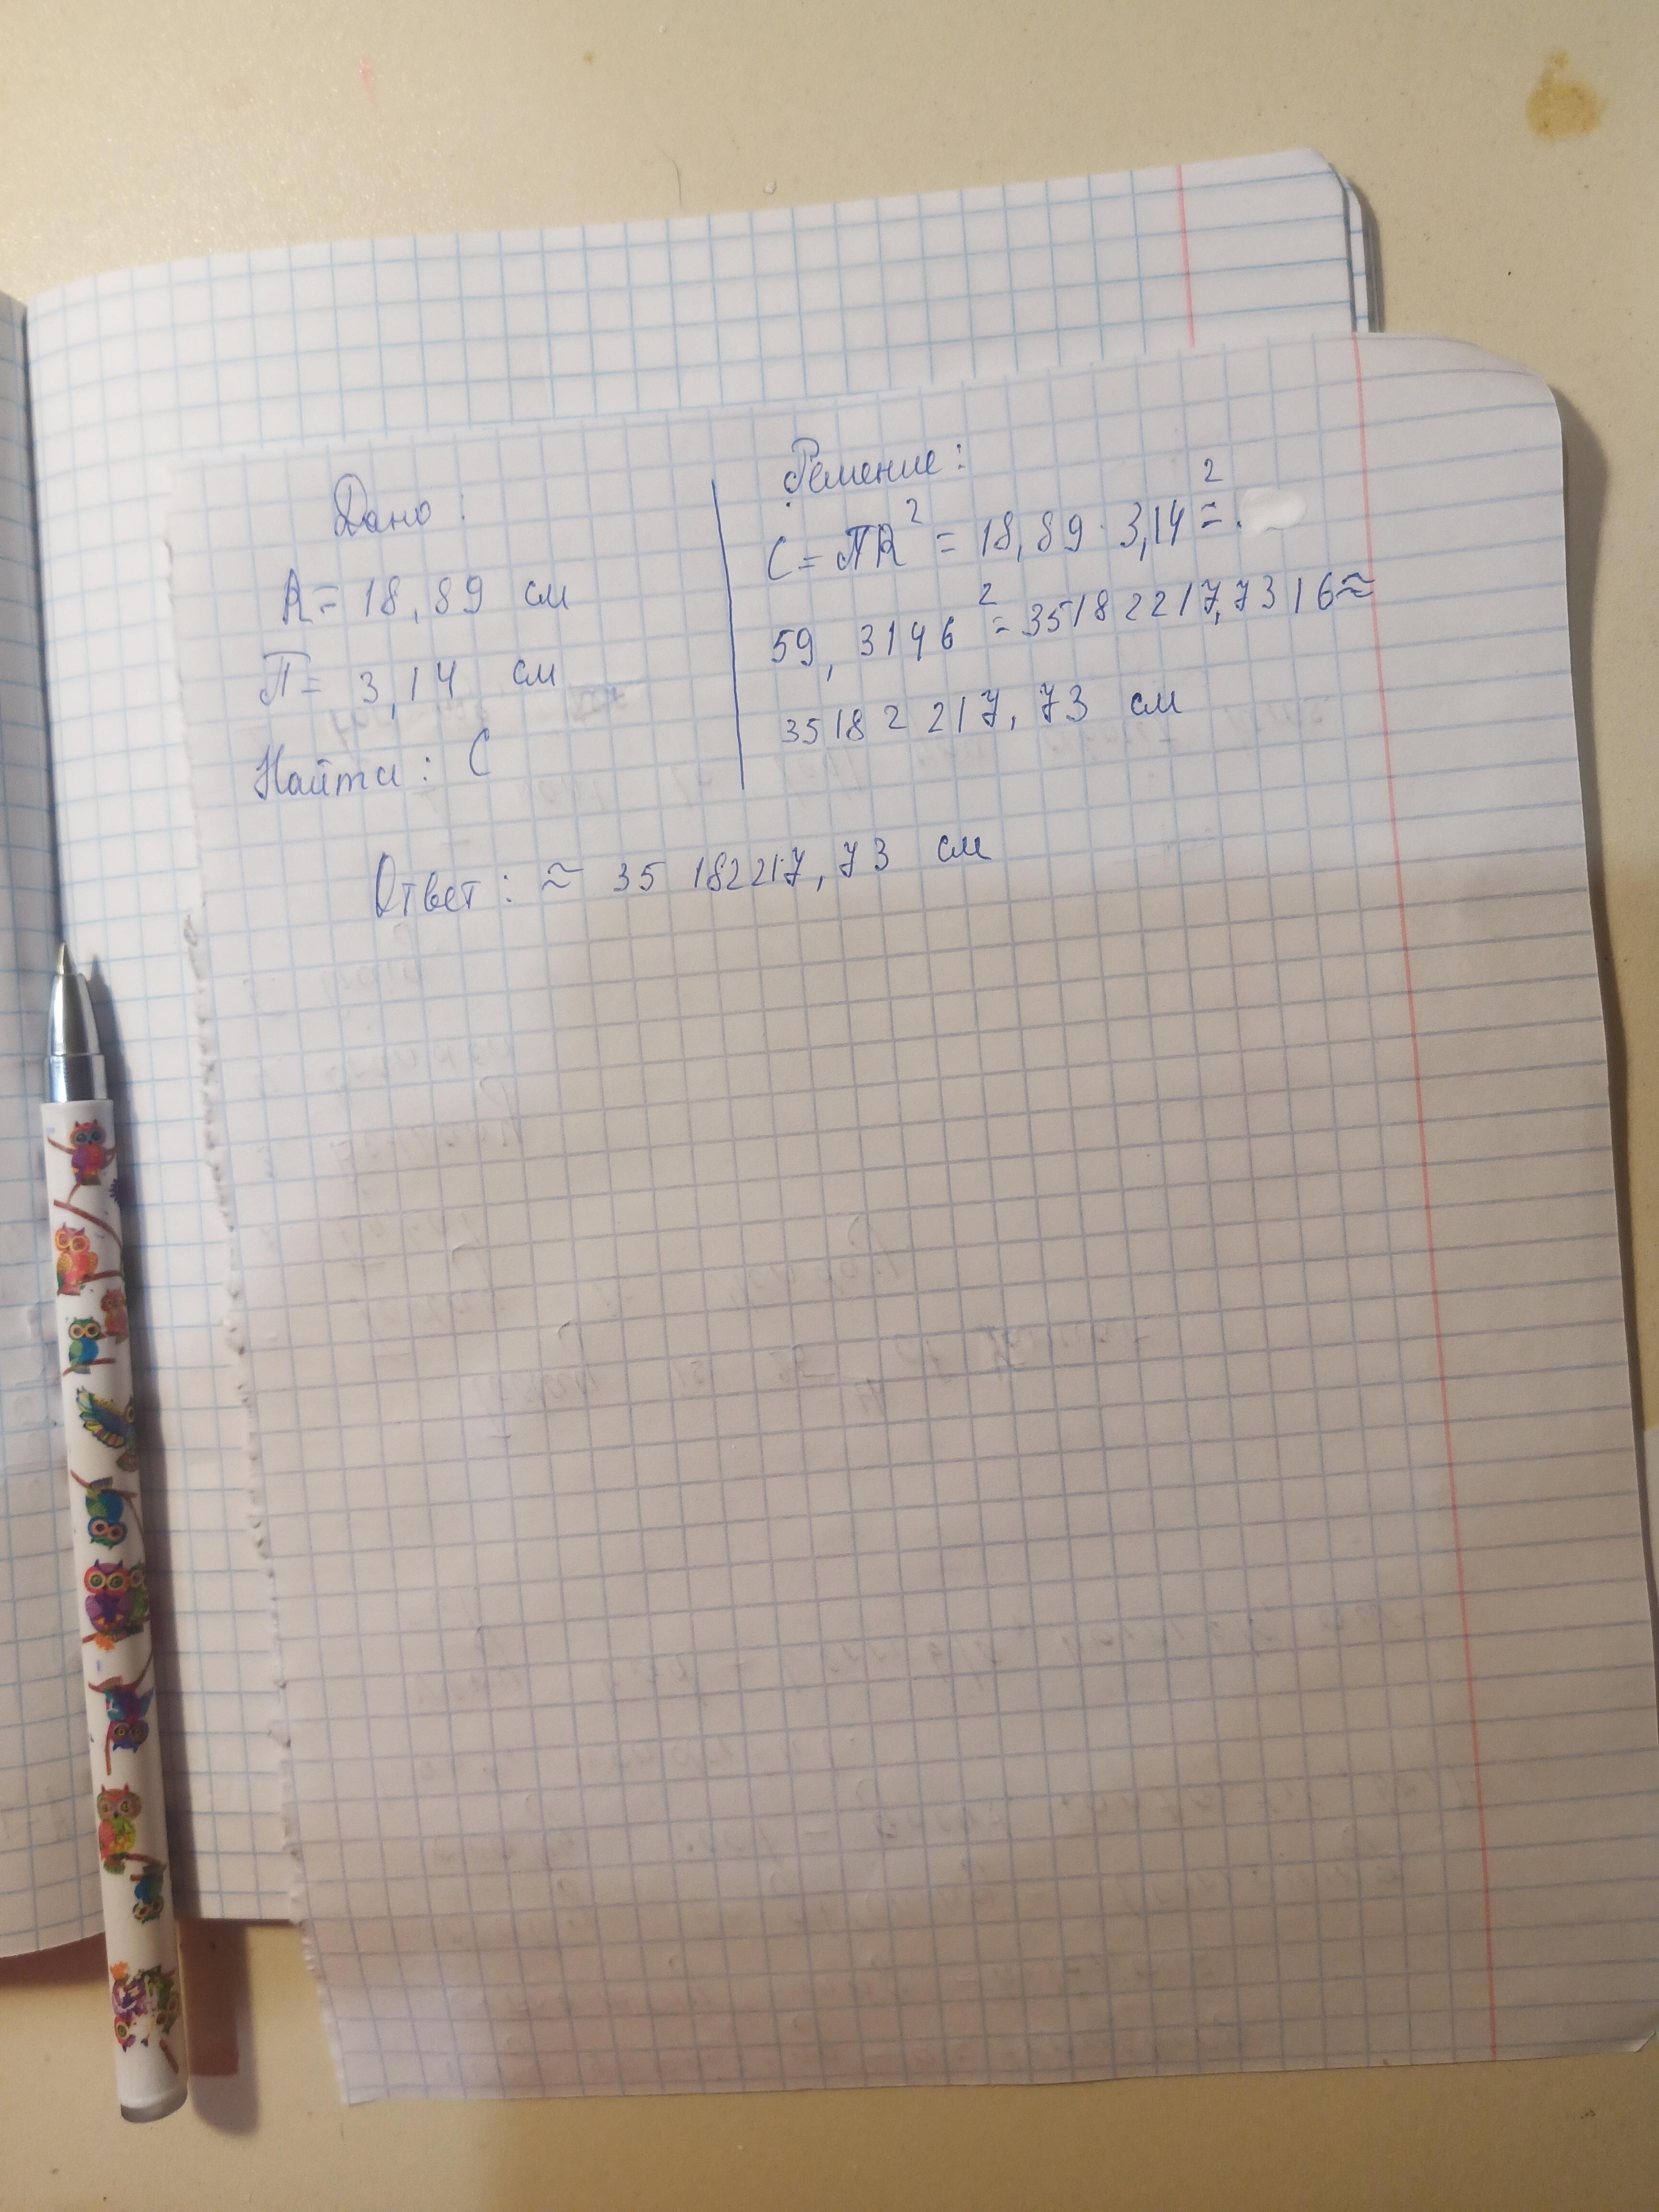 Дано:
R= 18,89 см
П= 3,14 см
Найти: С
Решение:
С= ПR² = 18,89 · 3,14² =
59, 3146² = 35182217,7316≈
35182217,73 см
Ответ: ≈ 35182217,73 см